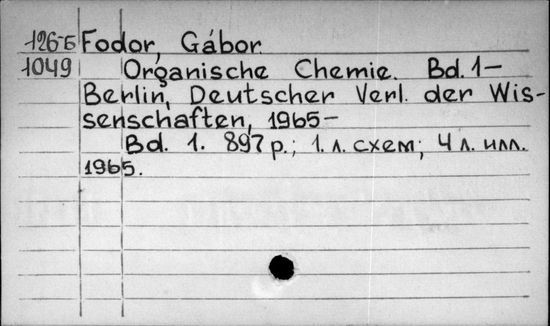 126-Б Fodor, Gábor
1049 Organische Chemie. Bd. 1—
Berlin, Deutscher Verl. der Wis-
senschaften, 1965—
Bd. 1. 897 p.; 1. л. схем; 4 л. илл.
1965.